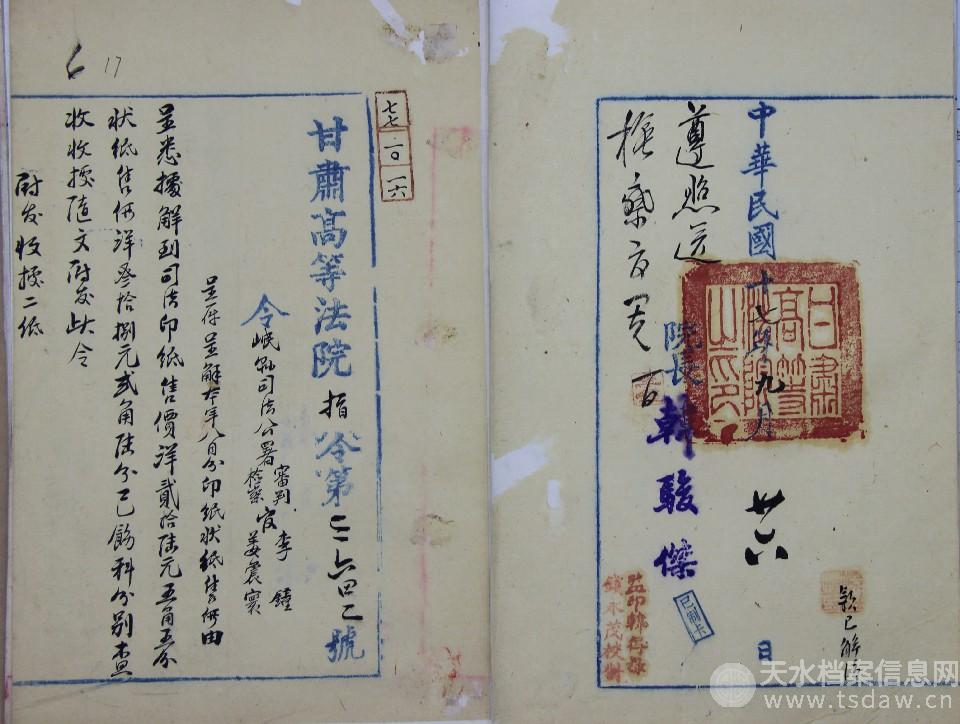 中華民國十七年九月廿六日
遵照送
檢察官閱
院長韓駿傑
甘肅高等法院之印
款已解
已制卡
監印韓
七七 二〇 一六
甘肅高等法院指令第二六四二號
令岷縣司法公署審判官李鐘
檢察官姜震寰
呈一件呈解本年八月分印紙狀紙售價由
呈悉據解到司法印紙售價洋貳拾陸元五角五分
狀紙售價洋叄拾捌元貳角陸分已飭科分別查
收收據隨文附发此令
附发收據二紙
6 17
天水档案信息网
www.tsdaw.cn